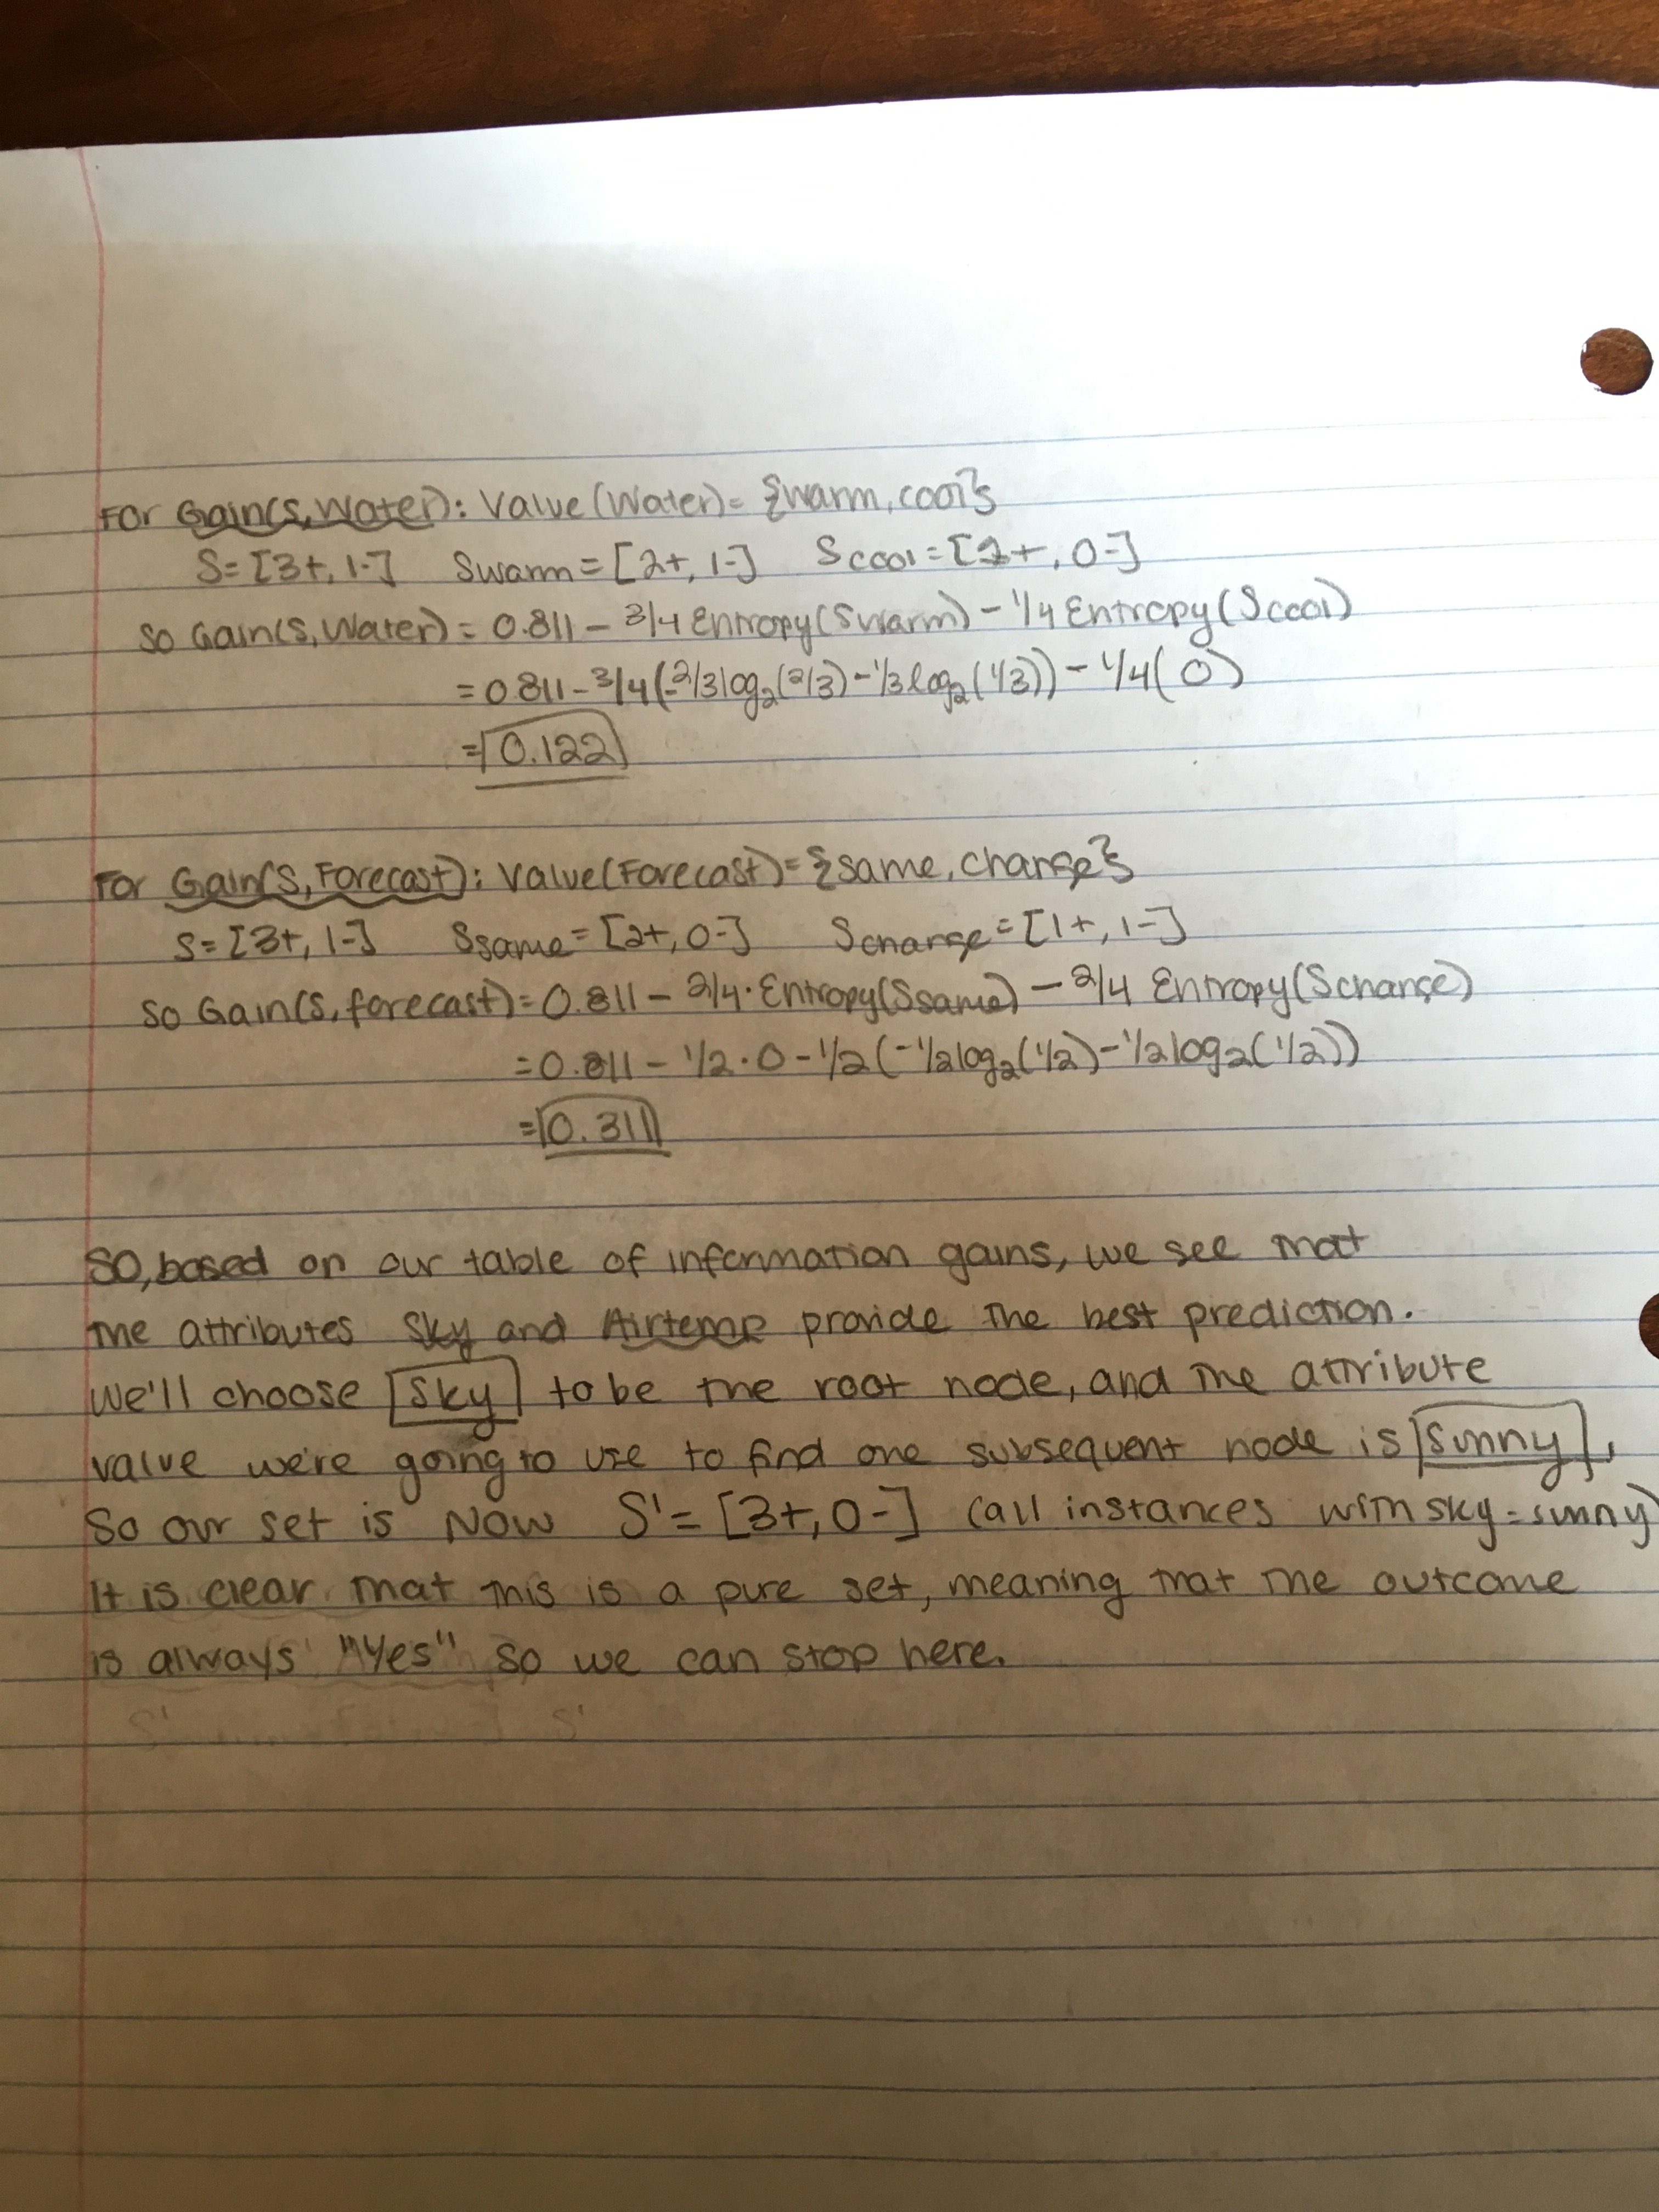 For Gain(S, Water): Value(Water)= {warm, cool}
S= [3+, 1-] Swarm = [2+, 1-] Scool = [1+, 0-]
So Gain(S, Water) = 0.811 - 3/4 Entropy(Swarm) - 1/4 Entropy(Scool)
= 0.811 - 3/4(-2/3log₂(2/3) - 1/3log₂(1/3)) - 1/4(0)
= 0.122
For Gain(S, Forecast): Value(Forecast)= {same, change}
S= [3+, 1-] Ssame = [2+, 0-] Schange = [1+, 1-]
So Gain(S, forecast) = 0.811 - 2/4 · Entropy(Ssame) - 2/4 Entropy(Schange)
= 0.811 - 1/2 · 0 - 1/2(-1/2log₂(1/2) - 1/2log₂(1/2))
= 0.311
So, based on our table of information gains, we see that
the attributes Sky and Airtemp provide the best prediction.
We'll choose Sky to be the root node, and the attribute
value we're going to use to find one subsequent node is sunny,
So our set is now S' = [3+, 0-] (all instances with sky = sunny)
It is clear that this is a pure set, meaning that the outcome
is always "Yes" so we can stop here.